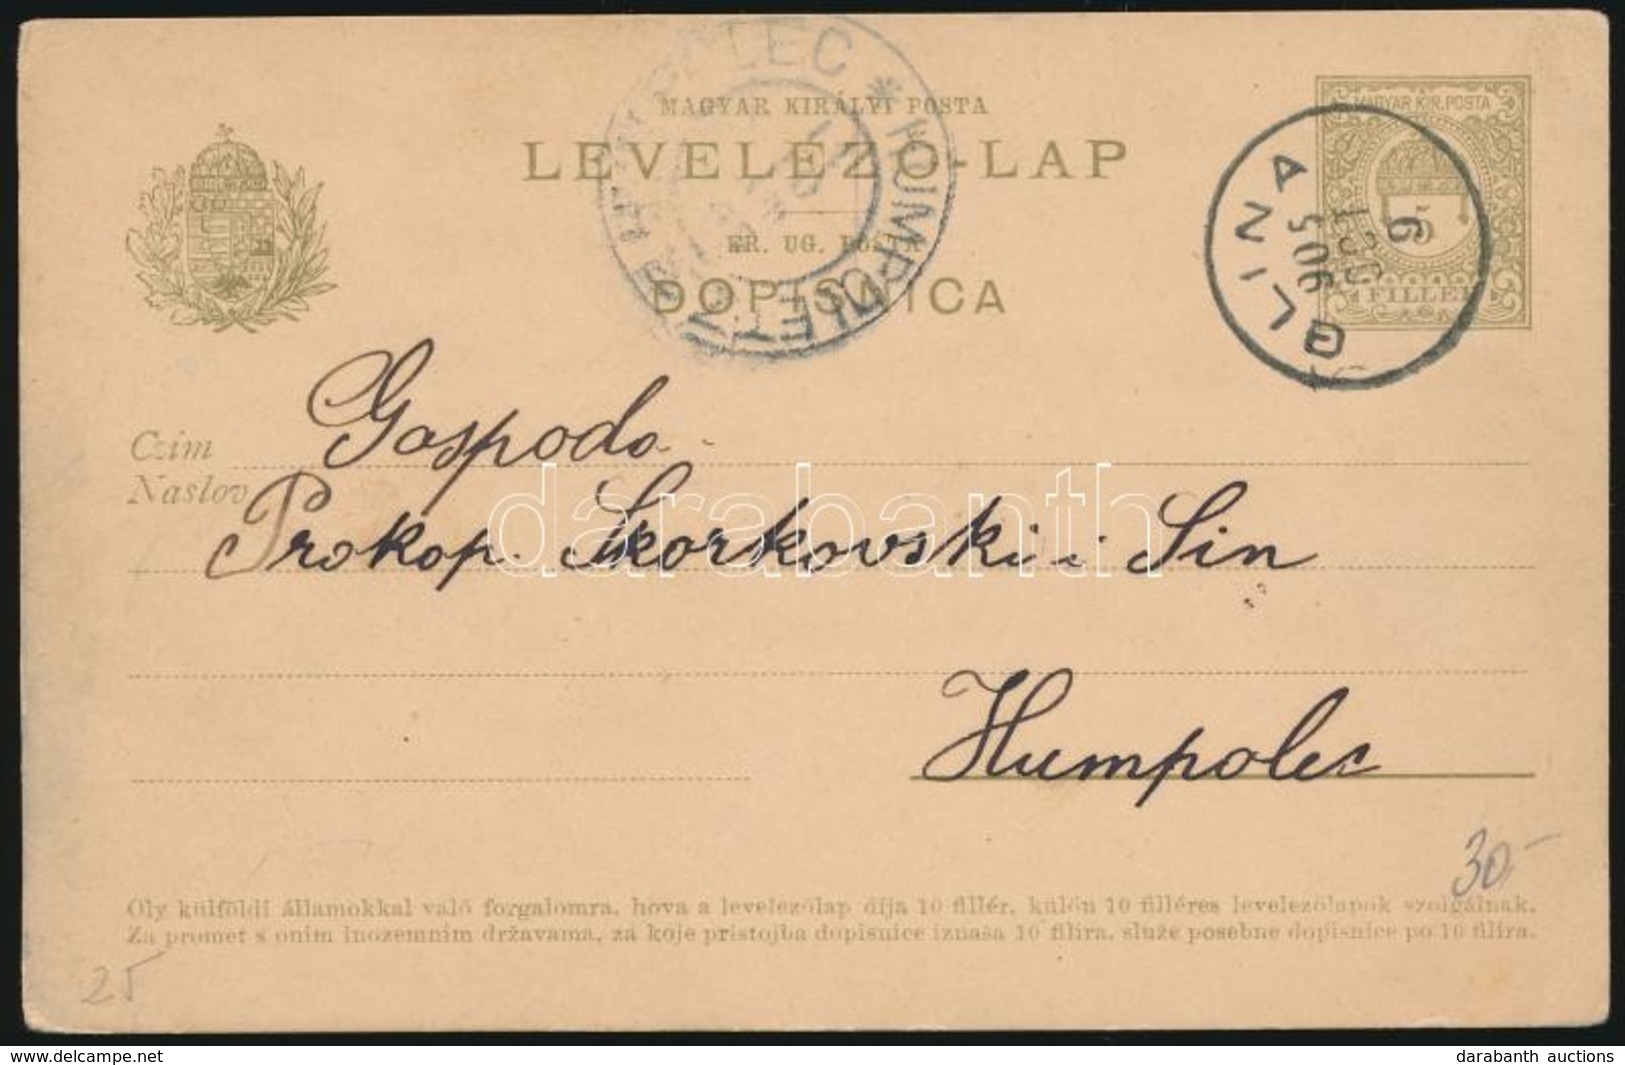 MAGYAR KIRÁLYI POSTA
LEVELEZŐ-LAP
KR. UG. POŠTA
DOPISNICA
HUMPOLEC * HUMPOLETZ
MAGYAR KIR. POSTA
5
FILLÉR
GLINA
905
6
Czim
Naslov
Gospoda
Prokop Skorkovski i Sin
Humpolec
30-
25
Oly külföldi államokkal való forgalomra, hova a levelezőlap díja 10 fillér, külön 10 filléres levelezőlapok szolgálnak.
Za promet s onim inozemnim državama, za koje pristojba dopisnice iznaša 10 filira, služe posebne dopisnice po 10 filira.
darabanth
© www.delcampe.net
darabanth auctions